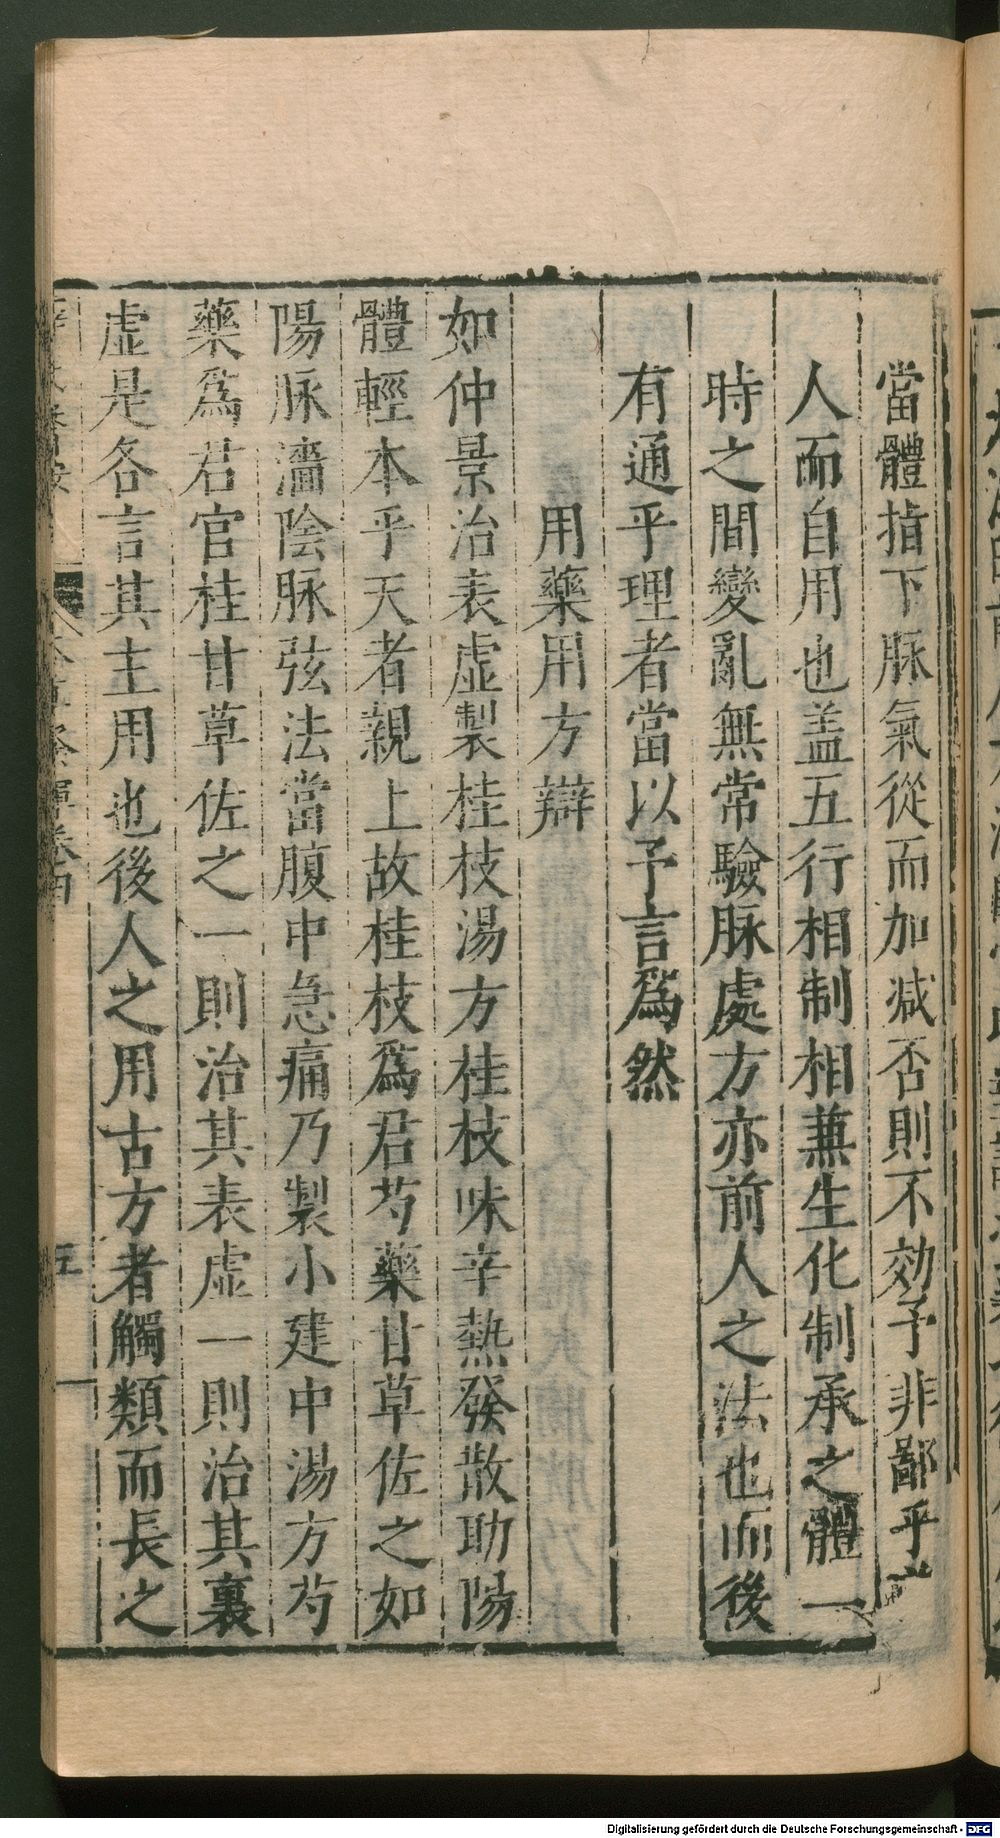 當體指下脉氣從而加減否則不効予非鄙乎
人而自用也盖五行相制相兼生化制承之體一
時之間變亂無常驗脉處方亦前人之法也而後
有通乎理者當以予言爲然
用藥用方辯
如仲景治表虛製桂枝湯方桂枝味辛熱發散助陽
體輕本乎天者親上故桂枝爲君芍藥甘草佐之如
陽脉濇陰脉弦法當腹中急痛乃製小建中湯方芍
藥爲君官桂甘草佐之一則治其表虛一則治其裏
虛是各言其主用也後人之用古方者觸類而長之
五
Digitalisierung gefördert durch die Deutsche Forschungsgemeinschaft - DFG